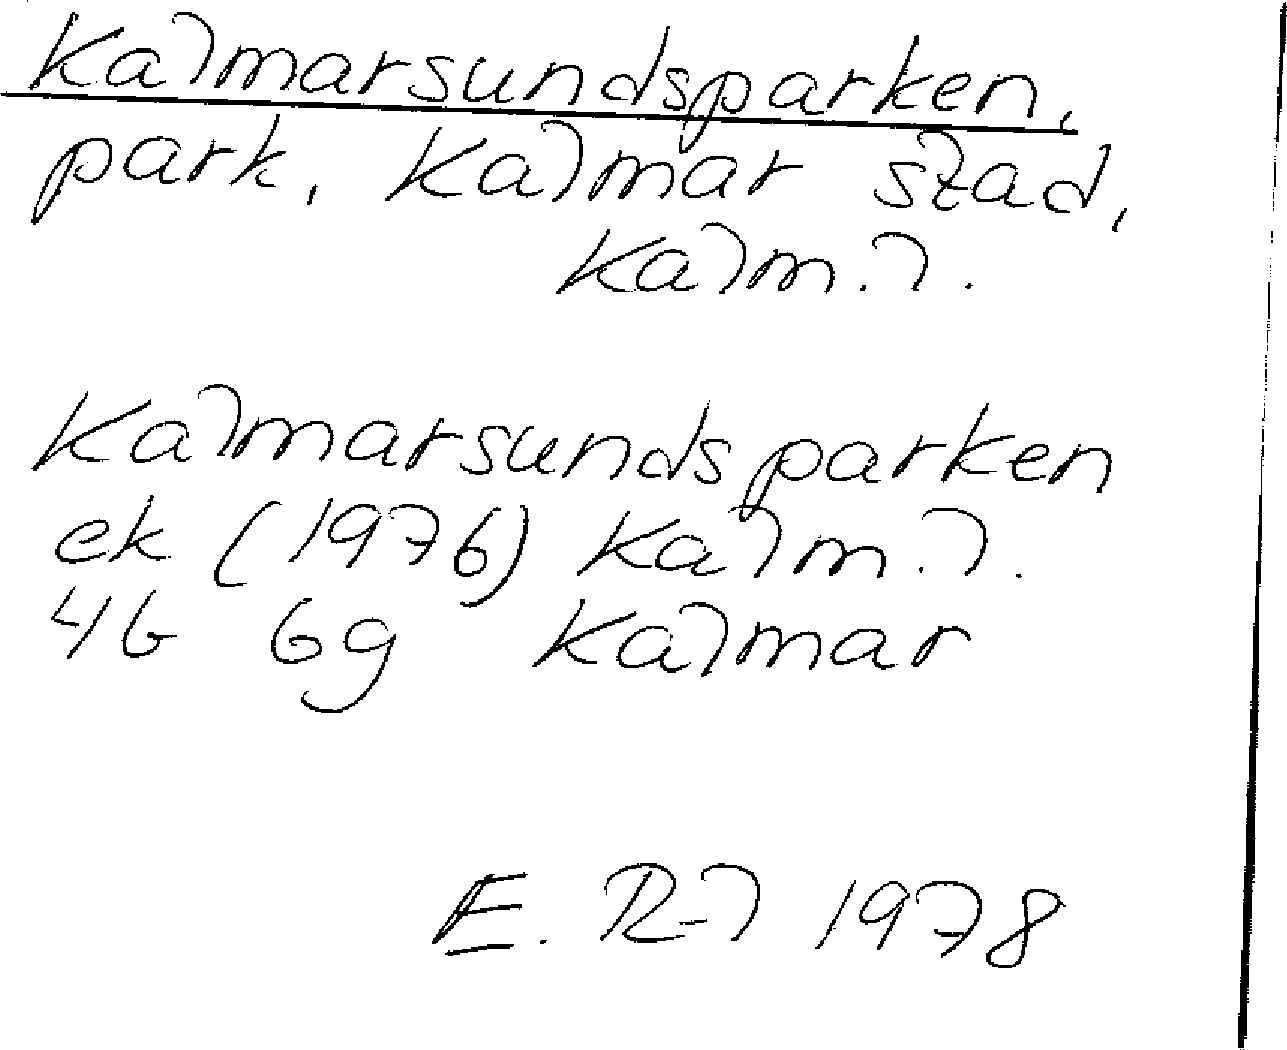 Kalmarsundsparken,
park, Kalmar stad,
Kalm.l.
Kalmarsundsparken
ek (1976) Kalm.l.
4G 6g Kalmar
E. R-l 1978